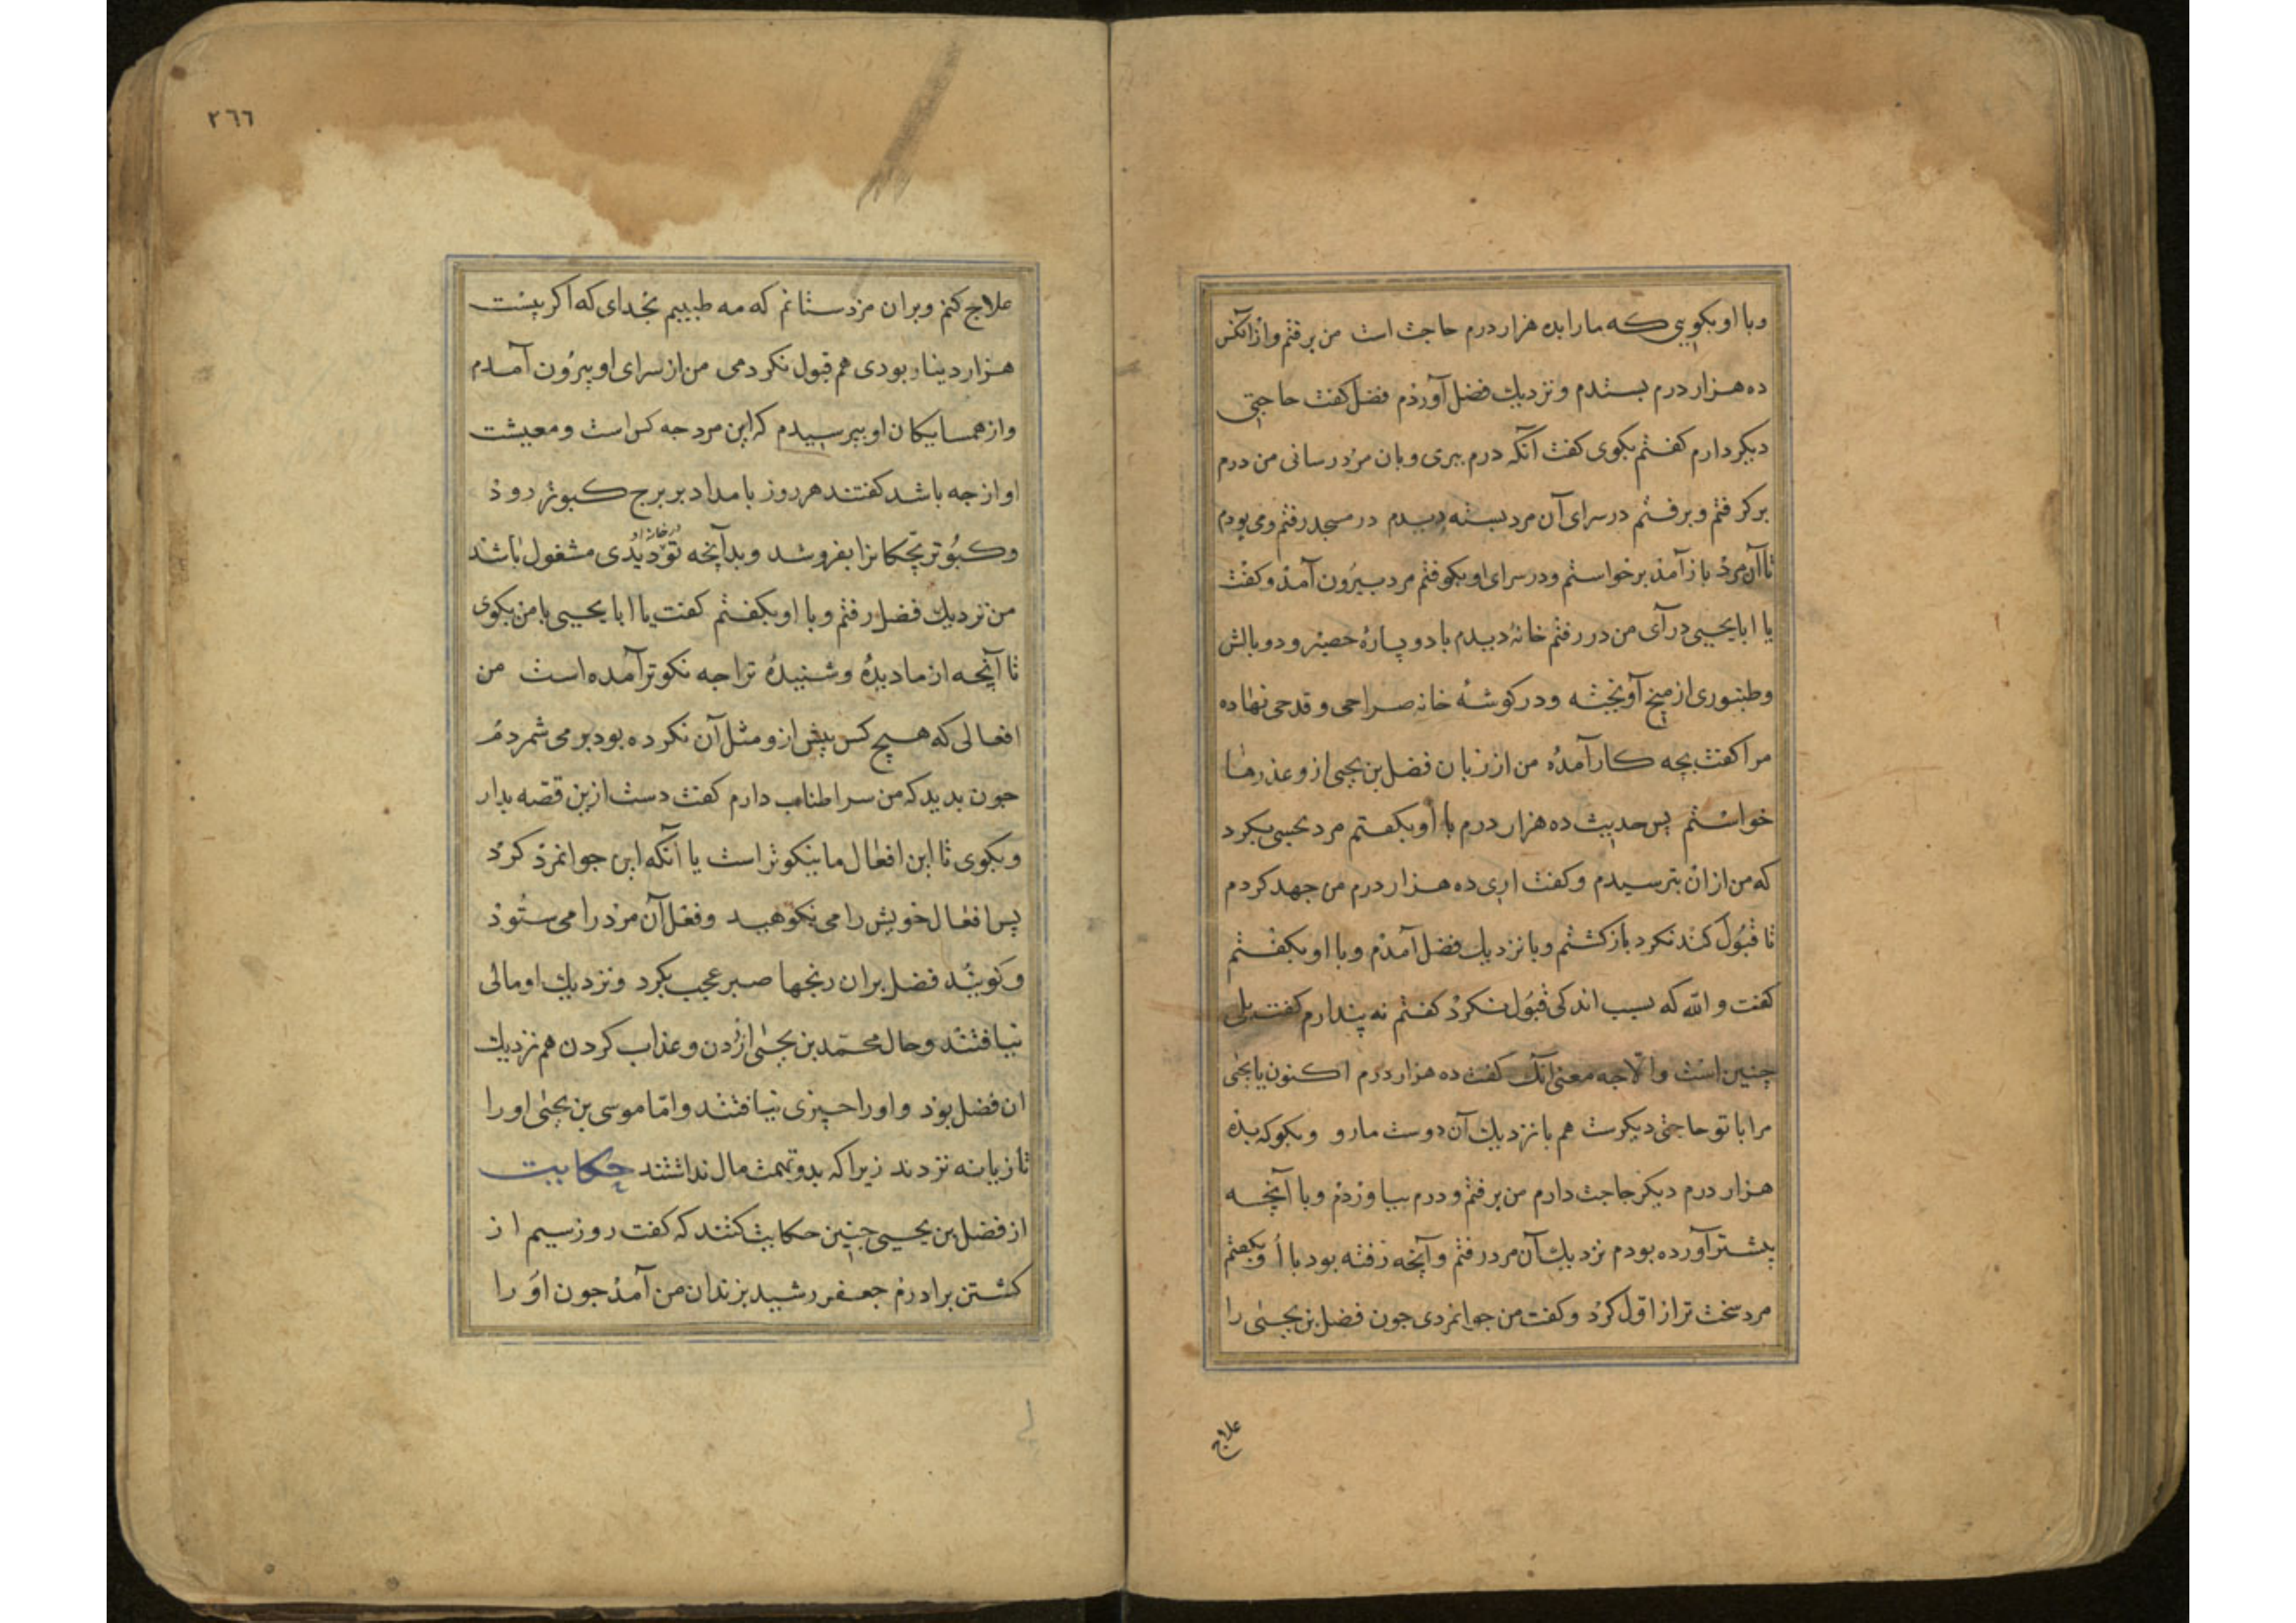 وبا او بکویی که مارا بده هزار درم حاجت است من برفتم وازانکس
ده هزار درم بستدم ونزدیك فضل آوردم فضل کفت حاجتی
دیکر دارم کفتم بکوی کفت آنکه درم ببری وبان مرد رسانی من درم
برکرفتم وبرفتم در سرای آن مرد بسته دیدم در مسجد رفتم ومی بودم
تا آن مرد باز آمد برخواستم ودر سرای او بکوفتم مرد بیرون آمد وکفت
یا ابا یحیی درآی من در رفتم خانۀ دیدم با دو پارۀ حصیر ودو بالش
وطنبوری از میخ آویخته ودر کوشۀ خانه صراحی وقدحی نهاده
مرا کفت بچه کار آمدۀ من از زبان فضل بن یحیی ازو عذرها
خواستم پس حدیث ده هزار درم با او بکفتم مرد بکرد
که من ازان بترسیدم وکفت اری ده هزار درم من جهد کردم
تا قبول کند نکرد بازکشتم وبا نزدیك فضل آمدم وبا او بکفتم
کفت والله که بسبب اندکی قبول نکرد کفتم نه پندارم کفت بلی
چنین است والا جه معنی آنك کفت ده هزار درم اکنون یا یحیی
مرا با تو حاجتی دیکرست هم با نزدیك آن دوست ما رو وبکو که بده
هزار درم دیکر حاجت دارم من برفتم ودرم بیاوردم وبا آنچه
پیشتر آورده بودم نزدیك آن مرد رفتم وآنچه رفته بود با او بکفتم
مرد سخت تر از اول کرد وکفت من جوانمردی جون فضل بن یحیی را
علاج
٢٦٦
علاج کنم وبران مزد ستانم که مه طبیبم بخدای که اکر بیست
هزار دینار بودی هم قبول نکردمی من از سرای او بیرون آمدم
واز همسایکان او بپرسیدم که این مرد جه کس است ومعیشت
او از جه باشد کفتند هر روز بامداد بر برج کبوتر رود
وکبوتر بچکانرا بفروشد وبدآنچه تو در خانه او دیدی مشغول باشد
من نزدیك فضل رفتم وبا او بکفتم کفت یا ابا یحیی با من بکوی
تا آنچه از ما دیدۀ وشنیدۀ ترا جه نکوتر آمده است من
افعالی که هیچ کس پیش ازو مثل آن نکرده بود برمی شمردم
جون بدید که من سر اطناب دارم کفت دست ازین قصه بدار
وبکوی تا این افعال ما نیکوتر است یا آنکه این جوانمرد کرد
پس افعال خویش را می نکوهید وفعل آن مرد را می ستود
وکویند فضل بران رنجها صبر عجب بکرد ونزدیك او مالی
نیافتند وحال محمد بن یحیی از زدن وعذاب کردن هم نزدیك
ان فضل بود واورا چیزی نیافتند واما موسی بن یحیی اورا
تازیانه نزدند زیرا که بدو تهمت مال نداشتند حکایت
از فضل بن یحیی چنین حکایت کنند که کفت روز سیم از
کشتن برادرم جعفر رشید بزندان من آمد جون او را